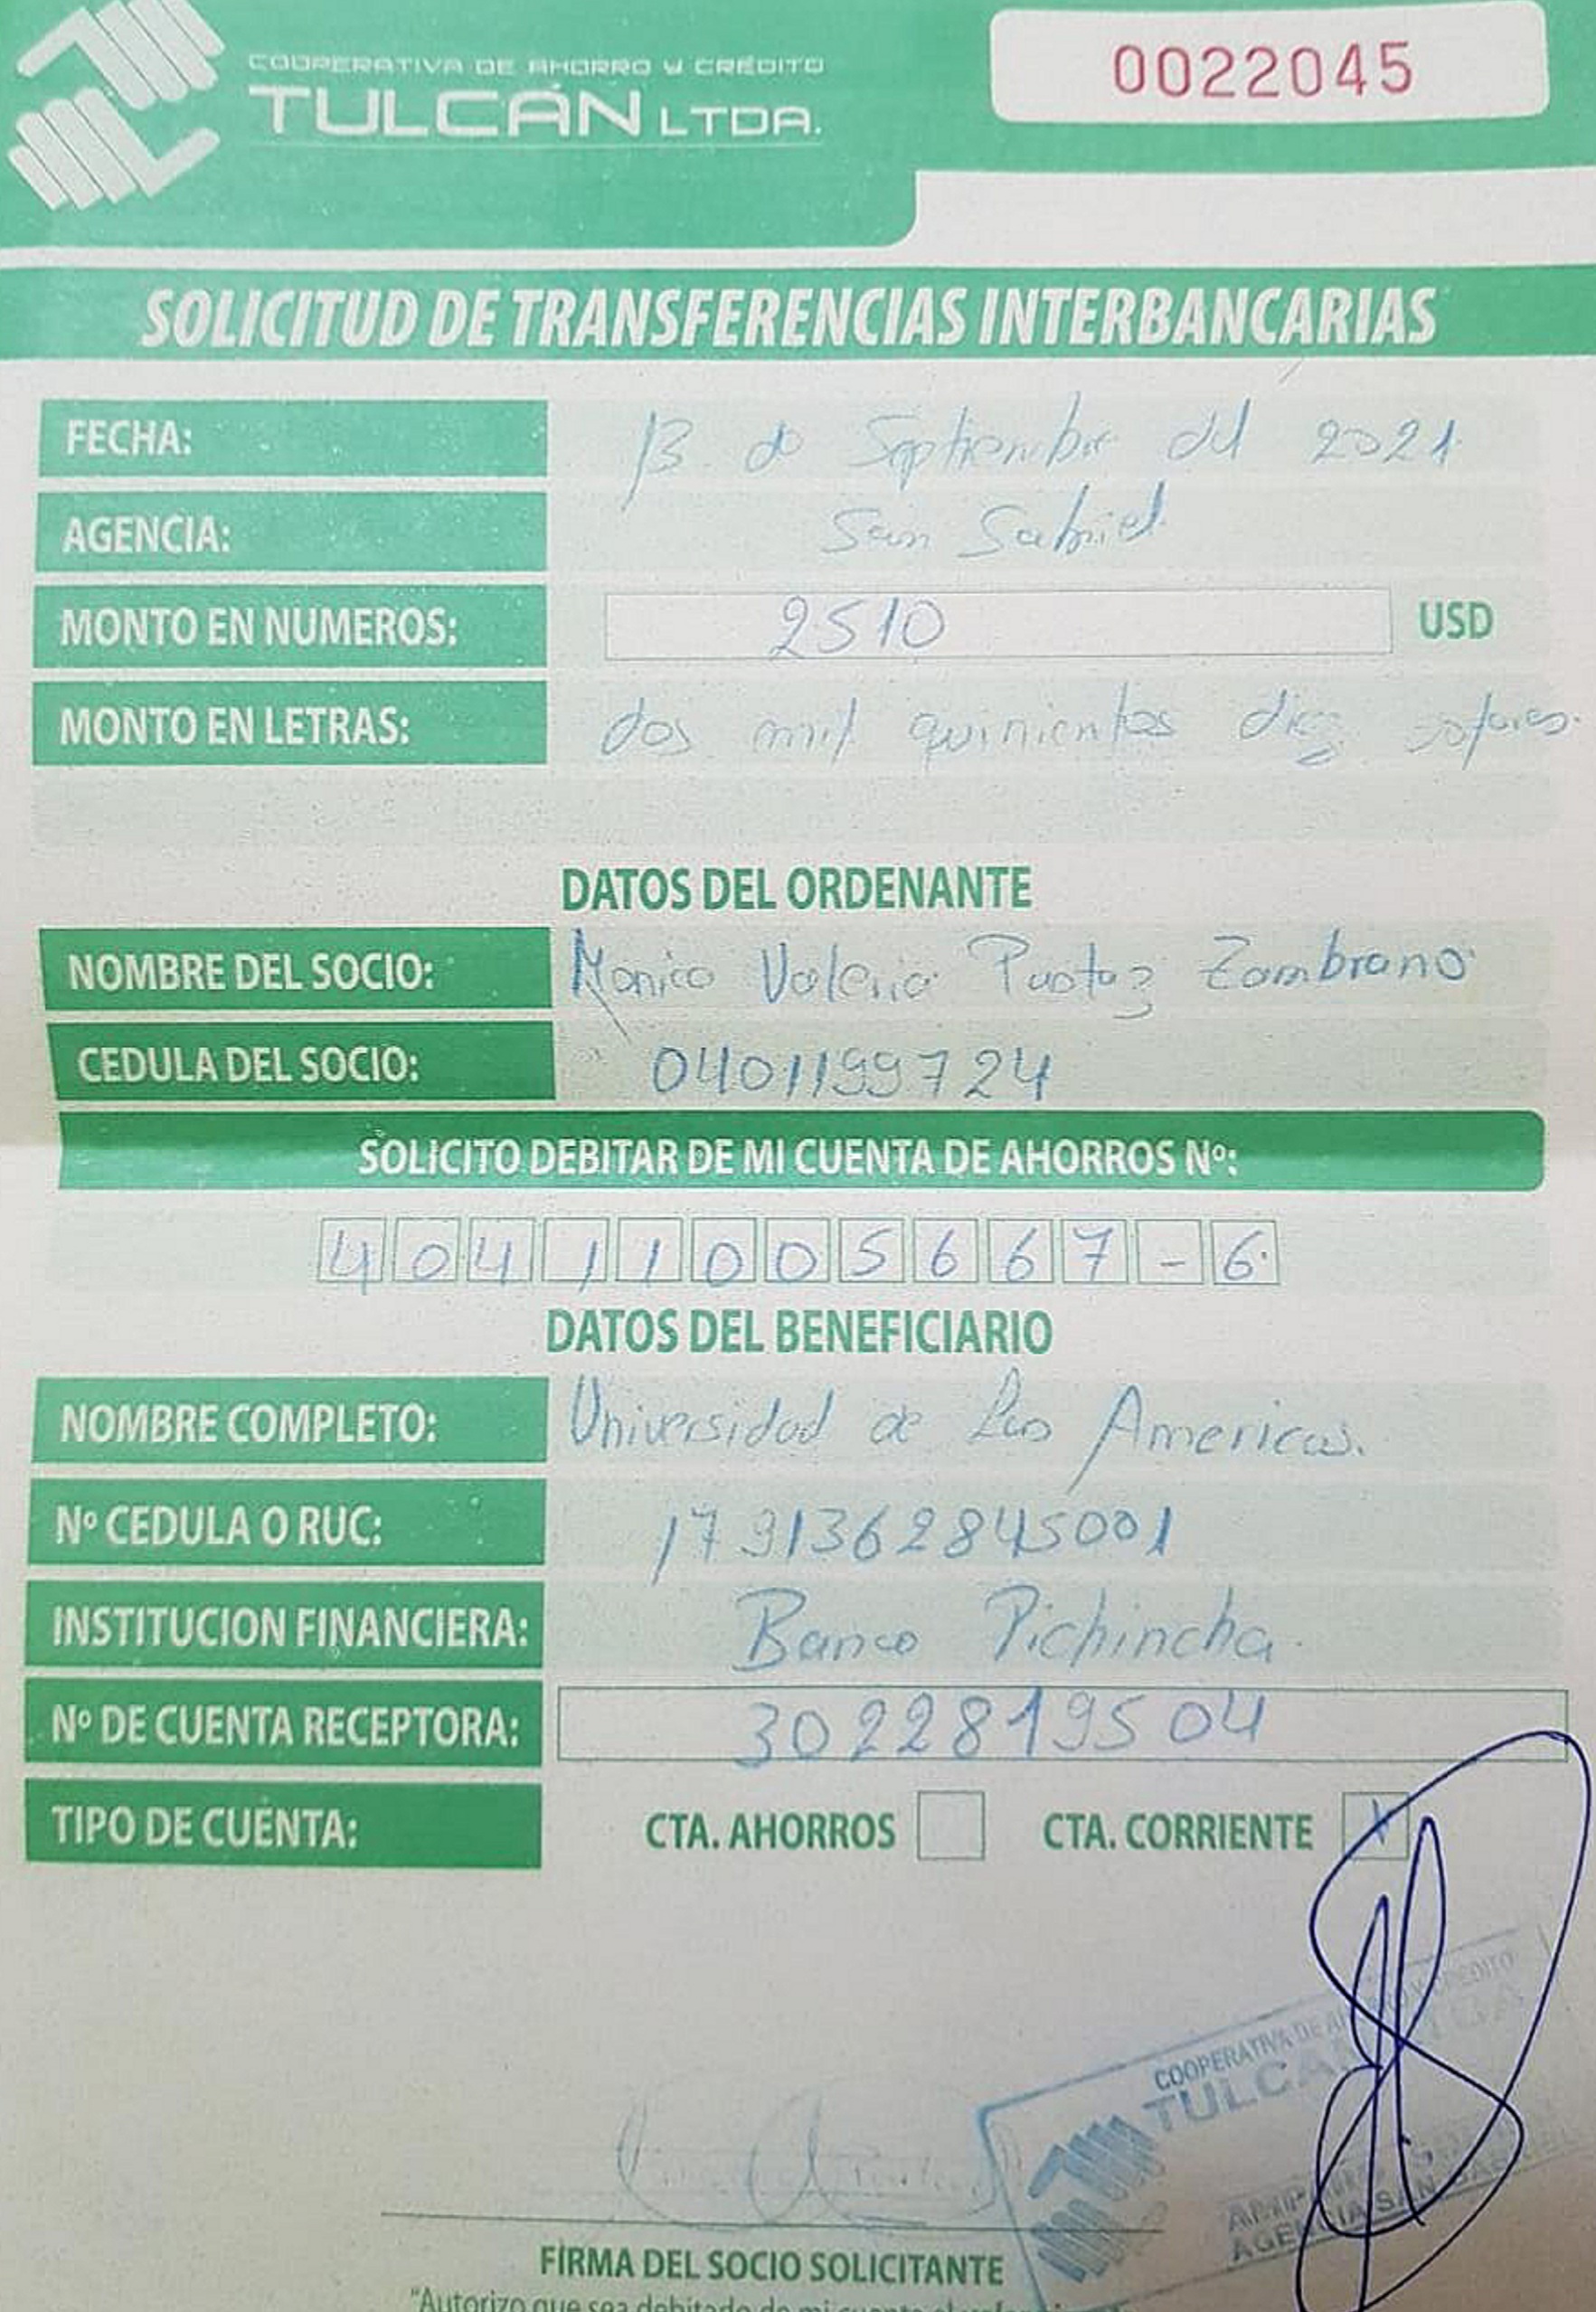 COOPERATIVA DE AHORRO Y CRÉDITO
TULCÁN LTDA.
0022045
SOLICITUD DE TRANSFERENCIAS INTERBANCARIAS
FECHA: 13 de Septiembre del 2021
AGENCIA: San Gabriel
MONTO EN NUMEROS: 2510 USD
MONTO EN LETRAS: dos mil quinientos diez
DATOS DEL ORDENANTE
NOMBRE DEL SOCIO: Monica Valeria Puetaz Zambrano
CEDULA DEL SOCIO: 0401199724
SOLICITO DEBITAR DE MI CUENTA DE AHORROS Nº:
40411005667-6
DATOS DEL BENEFICIARIO
NOMBRE COMPLETO: Universidad de Las Americas.
Nº CEDULA O RUC: 1791362845001
INSTITUCION FINANCIERA: Banco Pichincha
Nº DE CUENTA RECEPTORA: 3022819504
TIPO DE CUENTA: CTA. AHORROS CTA. CORRIENTE X
COOPERATIVA DE
TULCA
AGENCIA SAN GABRIEL
FIRMA DEL SOCIO SOLICITANTE
"Autorizo que sea debitado de mi cuenta el